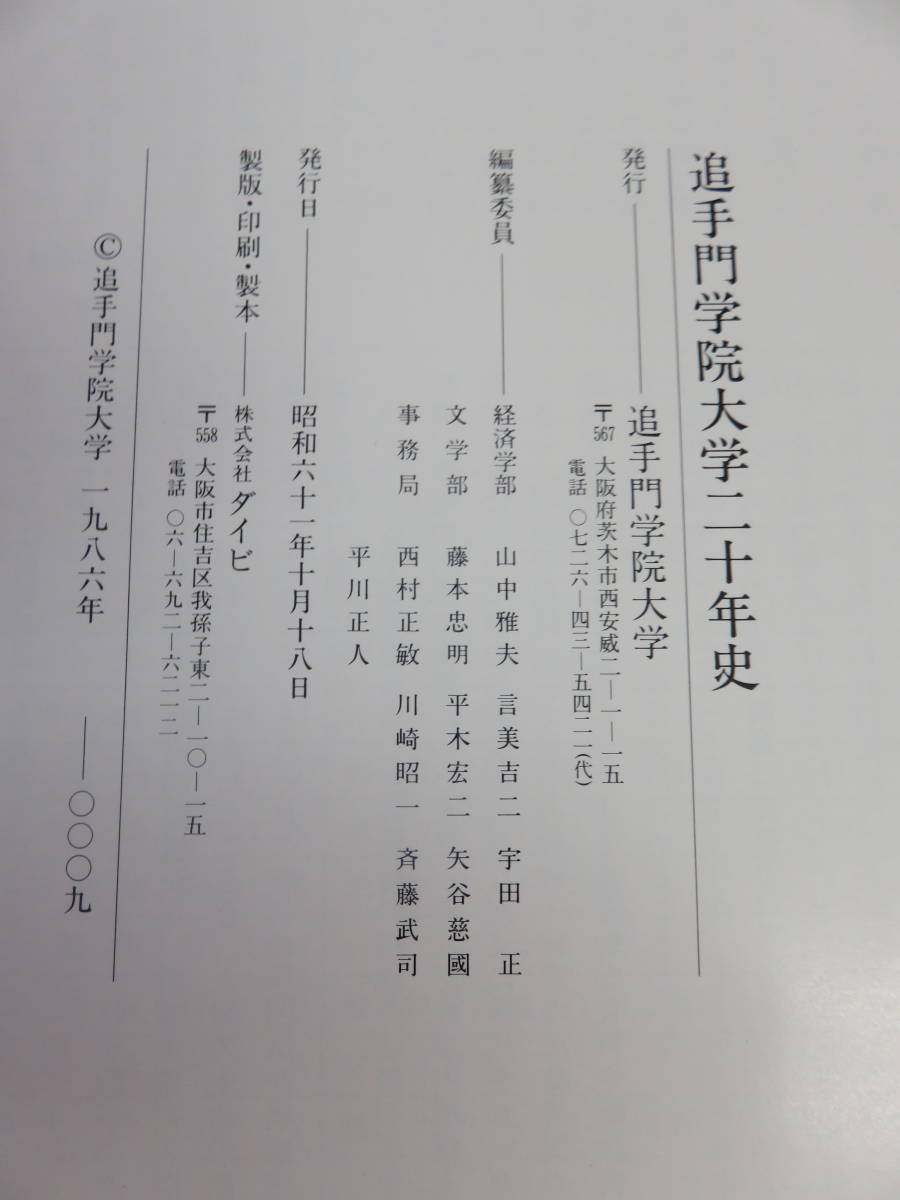 追手門学院大学二十年史
発行――追手門学院大学
〒567 大阪府茨木市西安威二―一―一五
電話 〇七二六―四三―五四二一(代)
編纂委員――経済学部 山中雅夫 言美吉二 宇田 正
文学部 藤本忠明 平木宏二 矢谷慈國
事務局 西村正敏 川崎昭一 斉藤武司
平川正人
発行日――昭和六十一年十月十八日
製版・印刷・製本――株式会社 ダイビ
〒558 大阪市住吉区我孫子東二―一〇―一五
電話 〇六―六九二―六二一二
©追手門学院大学 一九八六年 ―〇〇〇九